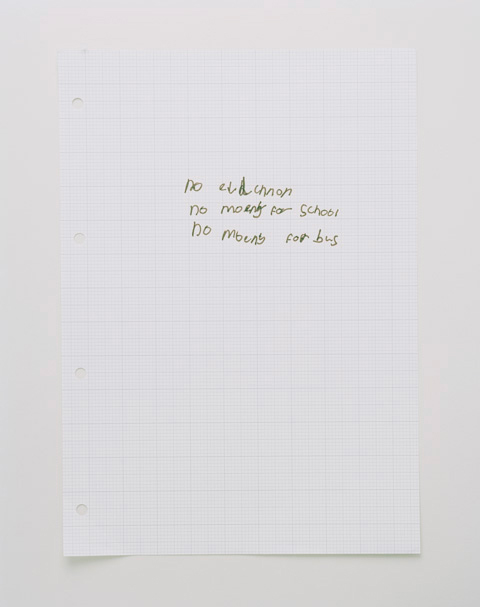 no educhnon
no moeny for school
no moeny for bus